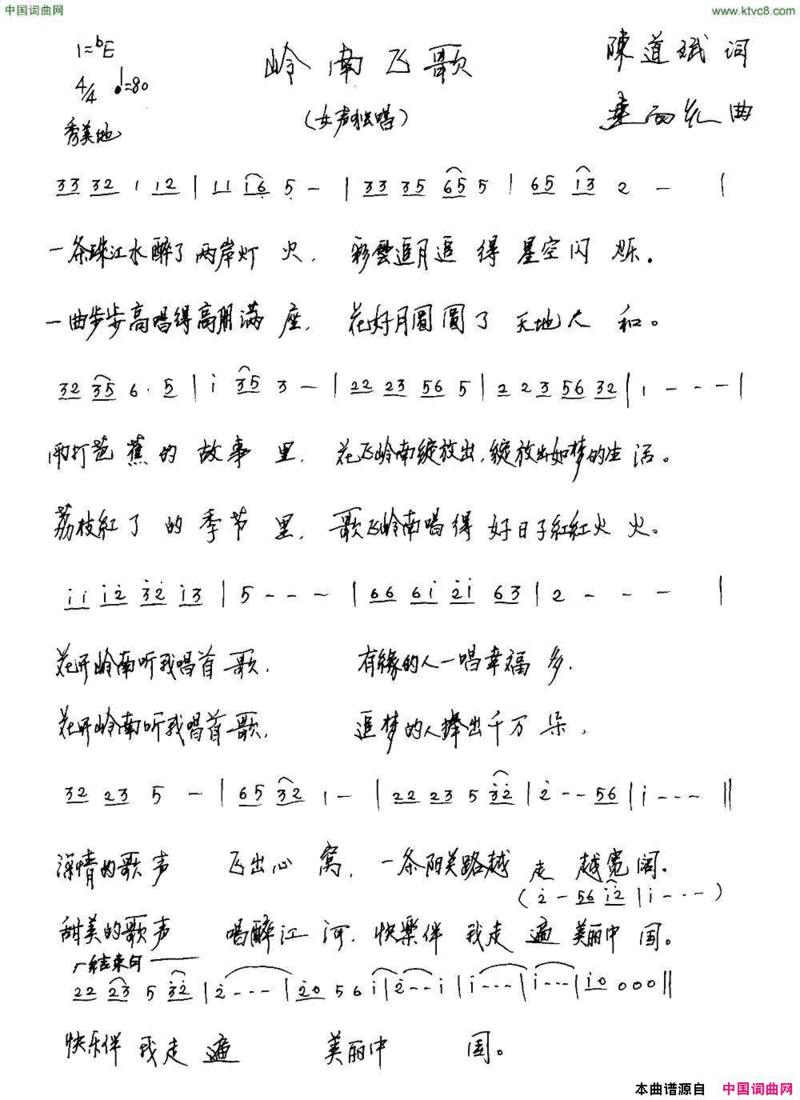 中国词曲网 www.ktvc8.com
1=bE 岭南飞歌 陳道斌 词
4/4 ♩=80 (女声独唱) 曲
秀美地
33 32 1 12 | 11 16 5 - | 33 35 65 5 | 65 13 2 - |
一条珠江水醉了两岸灯 火， 彩雲追月追 得 星空闪 烁。
一曲步步高唱得高朋满 座， 花好月圓圓了 天地人 和。
32 35 6· 5 | i 35 3 - | 22 23 56 5 | 2 23 56 32 | 1 - - - |
雨打芭 蕉 的 故 事 里， 花飞岭南绽放出，绽放出如梦的生 活。
荔枝紅 了 的 季 节 里， 歌飞岭南唱 得 好日子紅紅火 火。
ii i2 32 i3 | 5 - - - | 66 6i 2i 63 | 2 - - - |
花开岭南听我唱首 歌， 有緣的人一唱幸福 多，
花开岭南听我唱首 歌， 追梦的人捧出千万 朵，
32 23 5 - | 65 32 1 - | 22 23 5 32 | 2 - - 56 | i - - - ||
深情的歌 声 飞出心 窝， 一条阳关路越 走 越宽 阔。
(2 - 56 i2 | i - - - )
甜美的歌 声 唱醉江 河， 快樂伴 我走 遍 美丽中 国。
结束句
22 23 5 32 | 2 - - - | 20 5 6 i | 2 - - i | i - - - | i - - - | i0 0 0 0 ||
快乐伴 我走 遍 美丽中 国。
本曲谱源自 中国词曲网